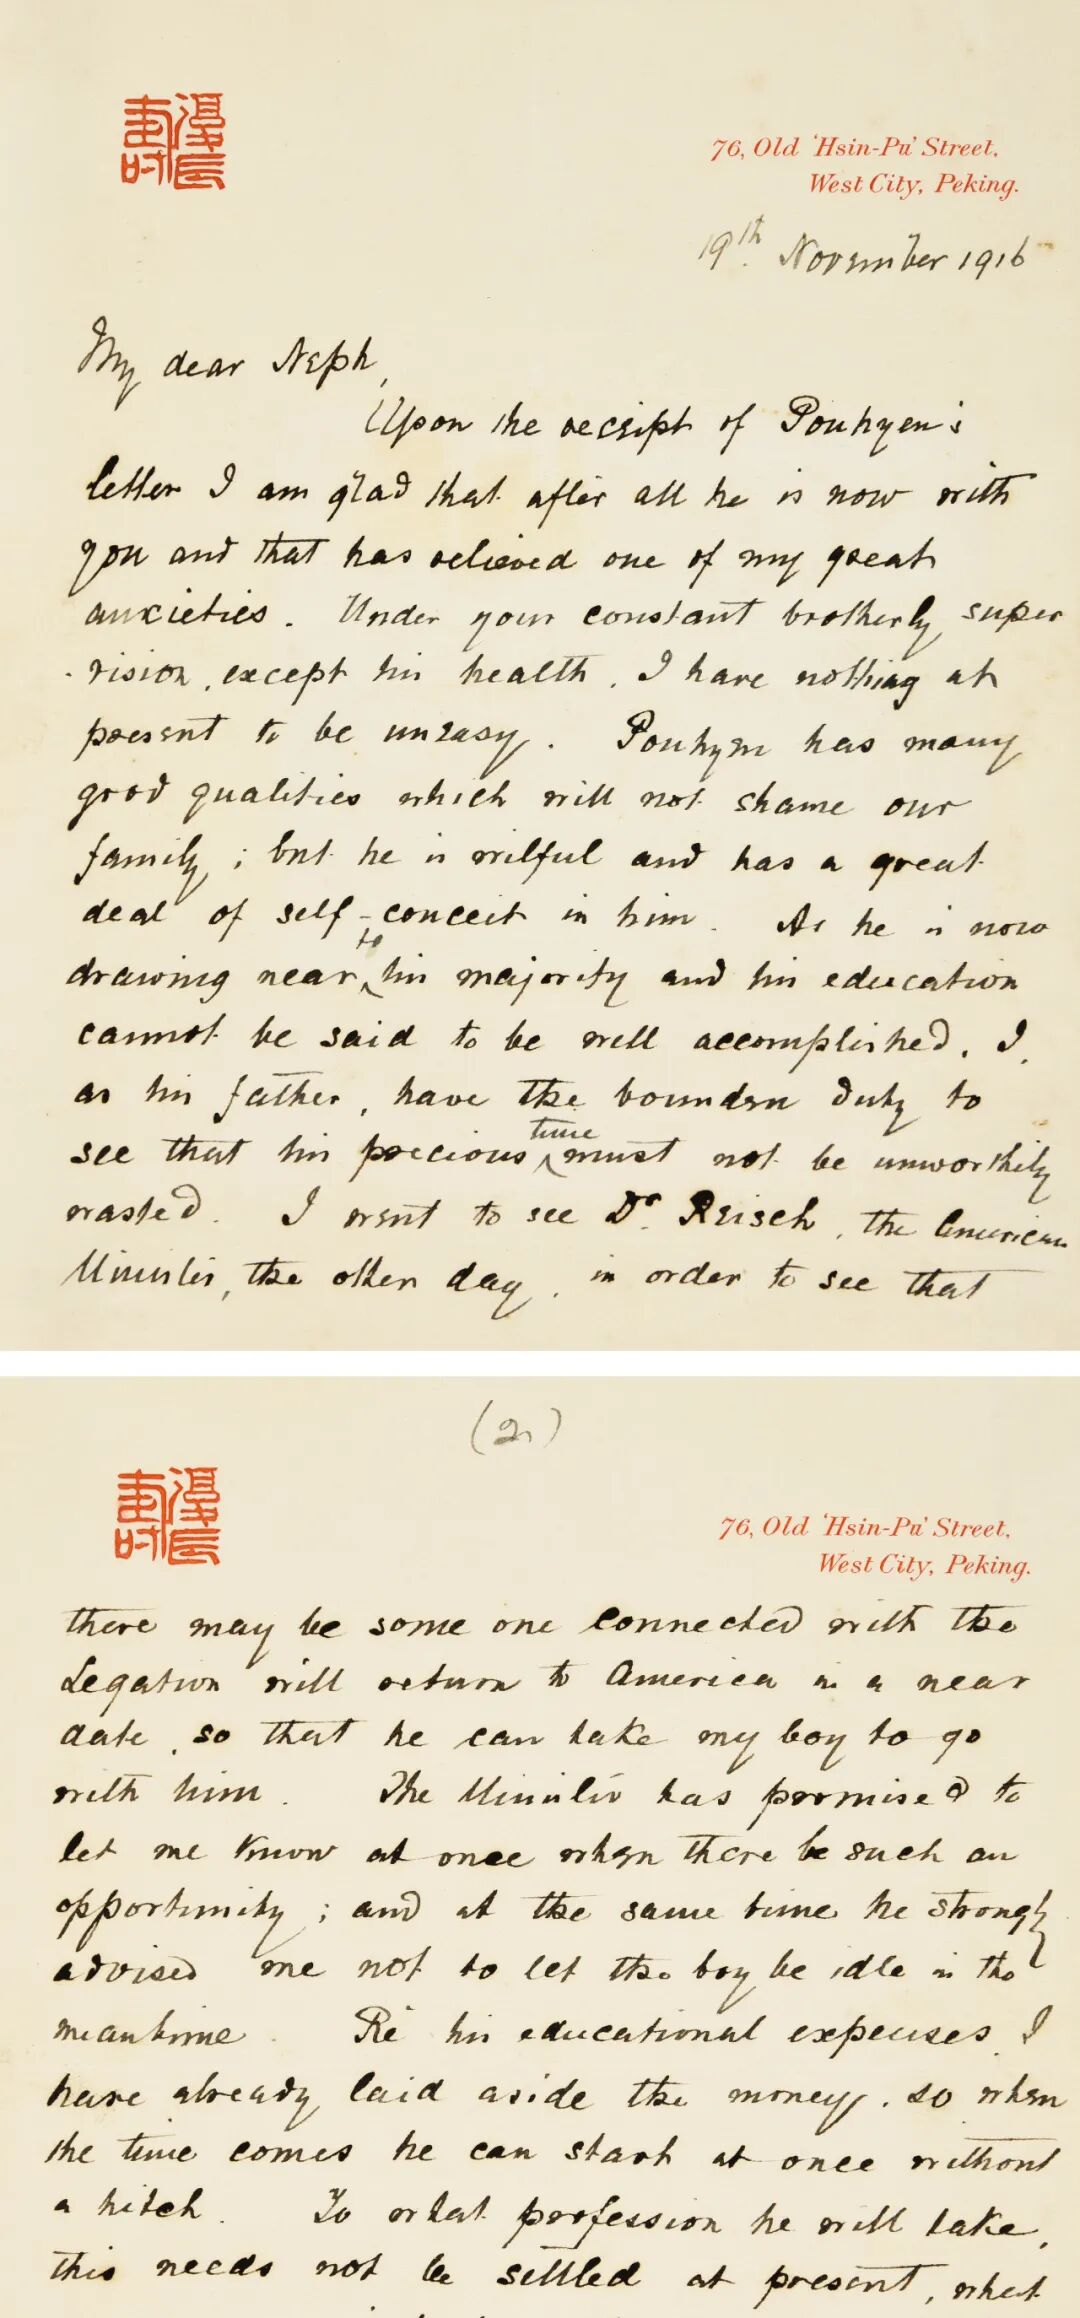 76, Old 'Hsin-Pu' Street,
West City, Peking.
19th November 1916
My dear Neph,
Upon the receipt of Pouhyen's
letter I am glad that after all he is now with
you and that has relieved one of my great
anxieties. Under your constant brotherly super
-vision, except his health, I have nothing at
present to be uneasy. Pouhyen has many
good qualities which will not shame our
family; but he is wilful and has a great
deal of self-conceit in him. As he is now
drawing near to his majority and his education
cannot be said to be well accomplished, I,
as his father, have the bounden duty to
see that his precious time must not be unworthily
wasted. I went to see Dr. Reisch, the American
Minister, the other day, in order to see that
(2)
76, Old 'Hsin-Pu' Street,
West City, Peking.
there may be some one connected with the
Legation will return to America in a near
date, so that he can take my boy to go
with him. The Minister has promised to
let me know at once when there be such an
opportunity; and at the same time he strongly
advised me not to let the boy be idle in the
meantime. Re his educational expenses, I
have already laid aside the money, so when
the time comes he can start at once without
a hitch. To what profession he will take,
this needs not be settled at present, what